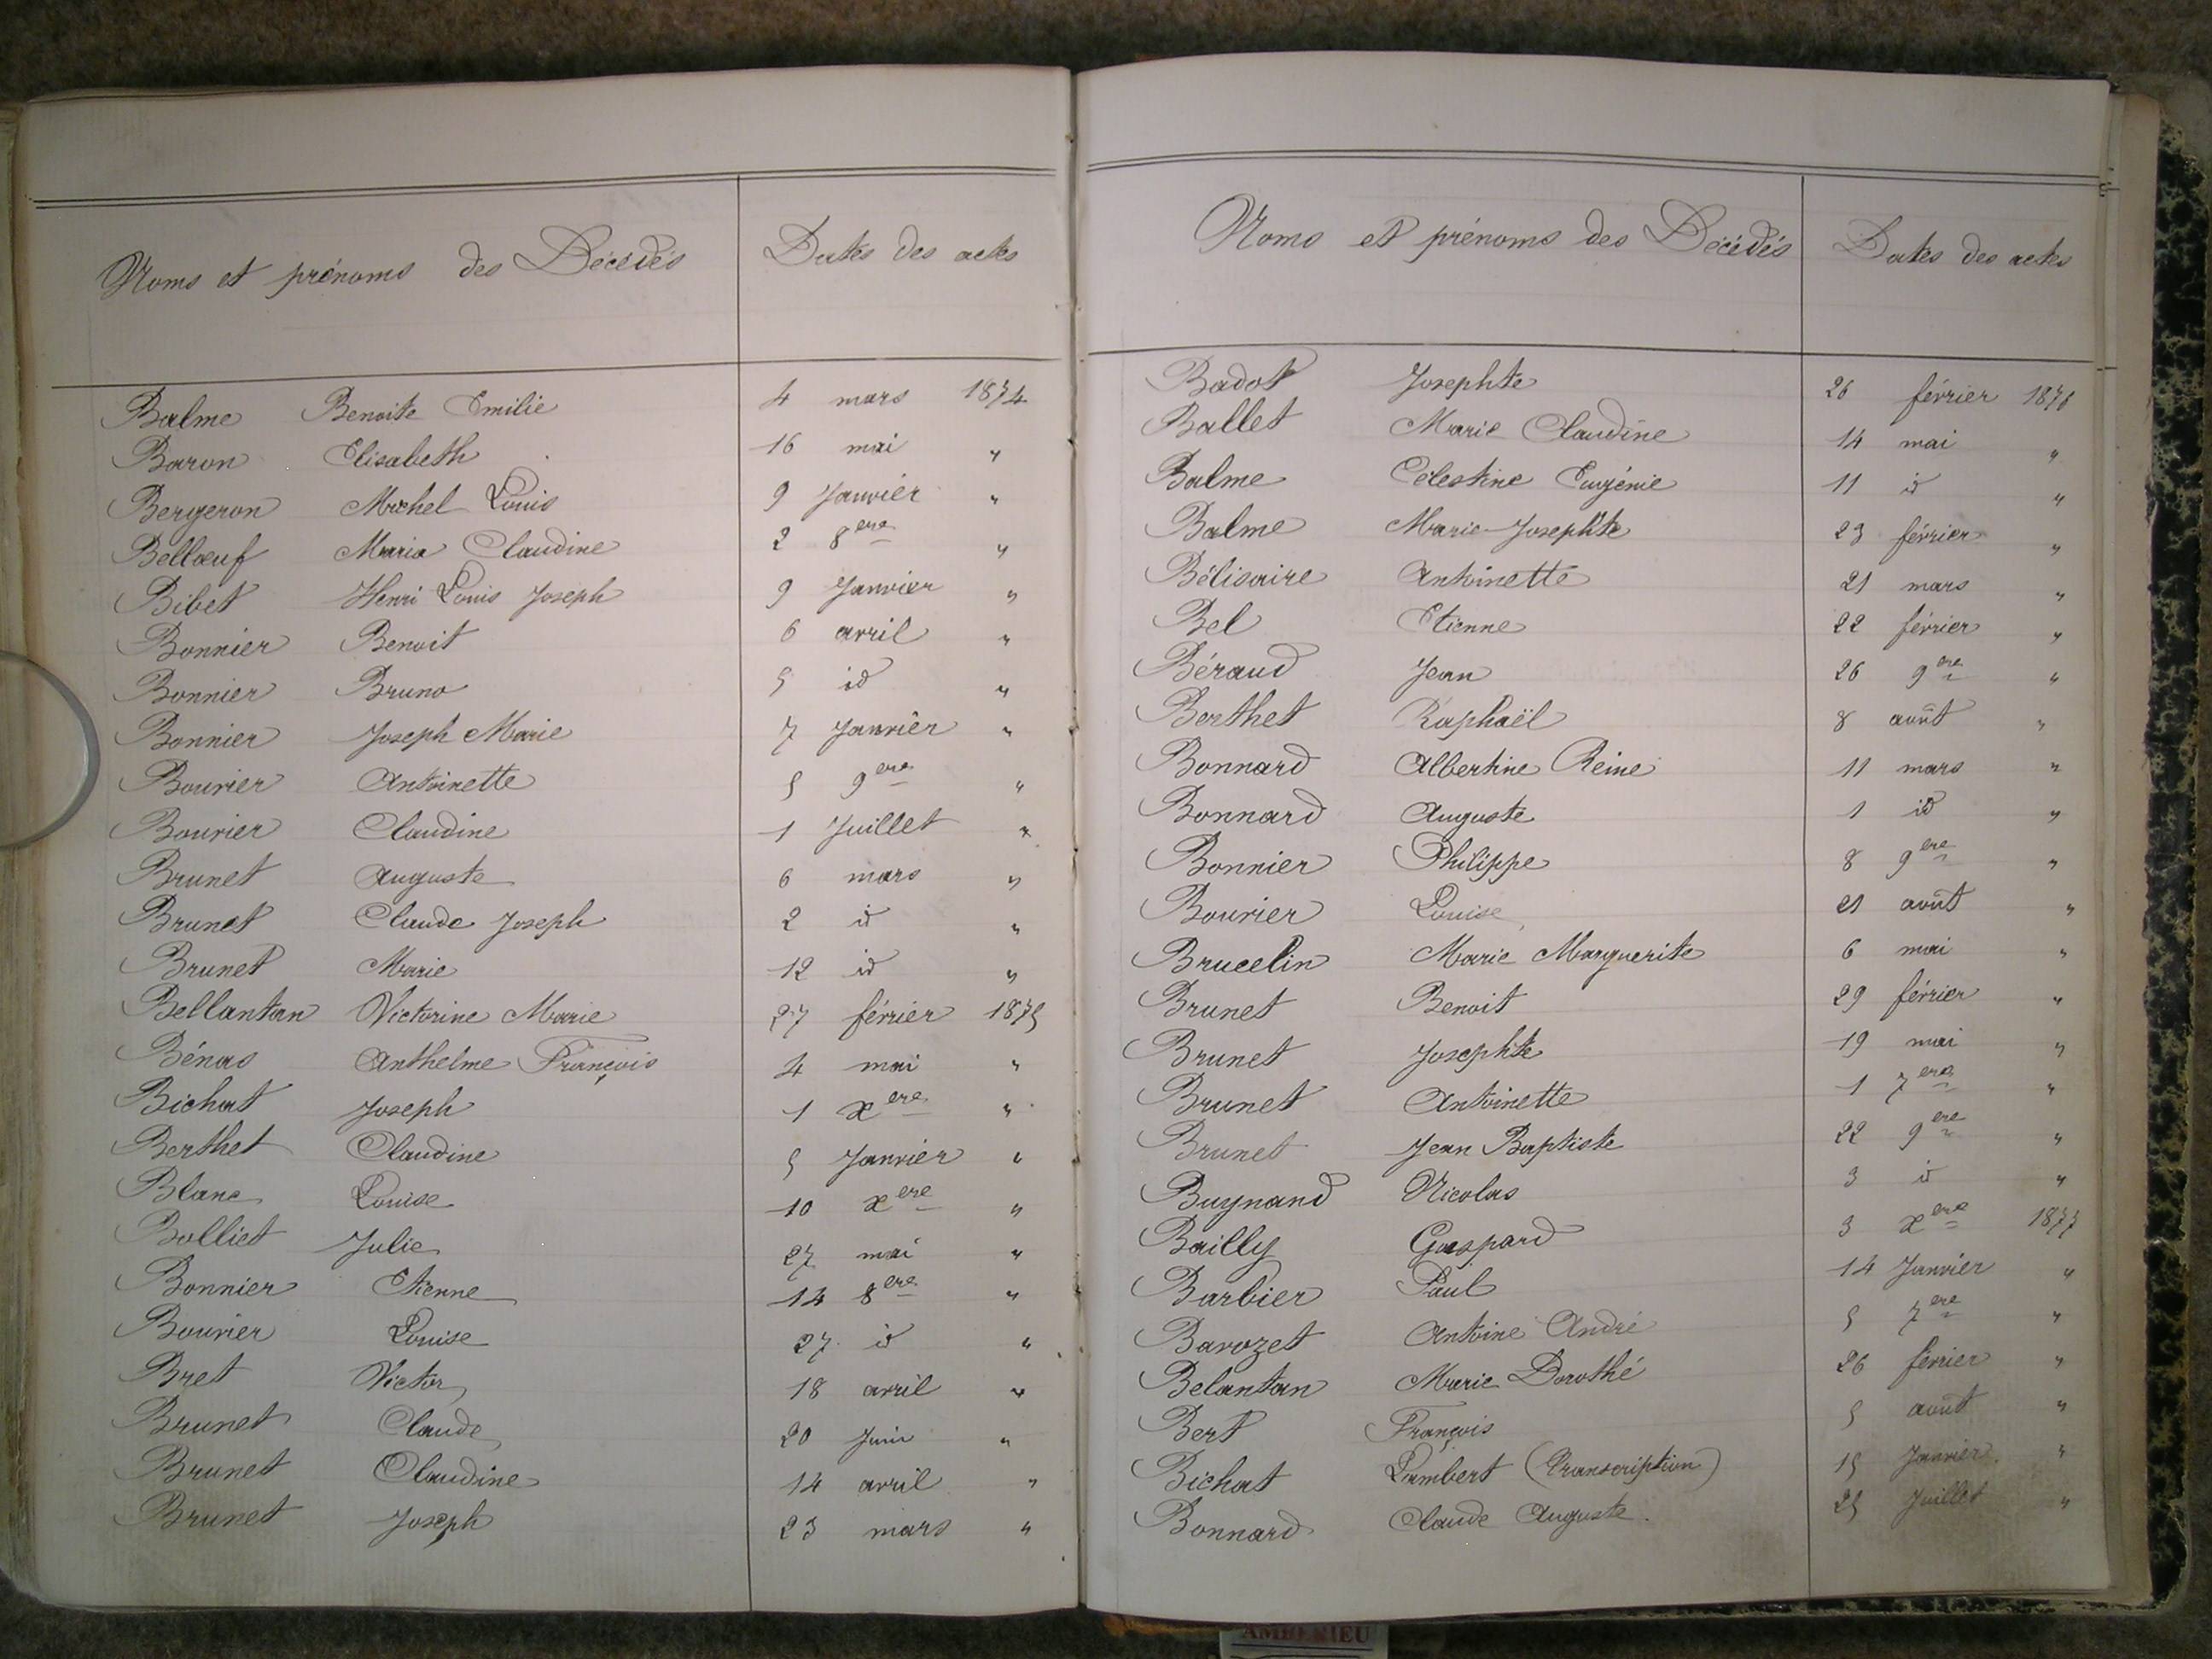 Noms et prénoms des Décédés Dates des actes
Balme Benoite Emilie 4 mars 1874
Baron Elisabeth 16 mai "
Bergeron Michel Louis 9 Janvier "
Bellœuf Maria Claudine 2 8ere "
Bibet Henri Louis Joseph 9 Janvier "
Bonnier Benoit 6 avril "
Bonnier Bruno 5 id "
Bonnier Joseph Marie 7 Janvier "
Bouvier Antoinette 5 9ere "
Bouvier Claudine 1 Juillet "
Brunet Auguste 6 mars "
Brunet Claude Joseph 2 id "
Brunet Marie 12 id "
Bellantan Victorine Marie 27 février 1875
Bénas Anthelme François 4 mai "
Bichat Joseph 1 xere "
Berthet Claudine 5 Janvier "
Blanc Louise 10 xere "
Bolliet Julie 27 mai "
Bonnier Etienne 14 8ere "
Bouvier Louise 27 id "
Bret Victor 18 avril "
Brunet Claude 20 Juin "
Brunet Claudine 14 avril "
Brunet Joseph 23 mars "
Noms et prénoms des Décédés Dates des actes
Badot Josephte 26 février 1876
Ballet Marie Claudine 14 mai "
Balme Célestine Eugénie 11 id "
Balme Marie-Josephte 23 février "
Bélisaire Antoinette 21 mars "
Bel Etienne 22 février "
Béraud Jean 26 9ere "
Berthet Raphaël 8 août "
Bonnard Albertine Reine 11 mars "
Bonnard Auguste 1 id "
Bonnier Philippe 8 9ere "
Bouvier Louise 21 août "
Brucelin Marie Marguerite 6 mai "
Brunet Benoit 29 février "
Brunet Josephte 19 mai "
Brunet Antoinette 1 7ere "
Brunet Jean Baptiste 22 9ere "
Buynand Nicolas 3 id "
Bailly Gaspard 3 xere 1877
Barbier Paul 14 Janvier "
Barozet Antoine André 5 7ere "
Belantan Marie Dorothé 26 février "
Bert François 5 août "
Bichat Lambert (Transcription) 15 Janvier "
Bonnard Claude Auguste 25 Juillet "